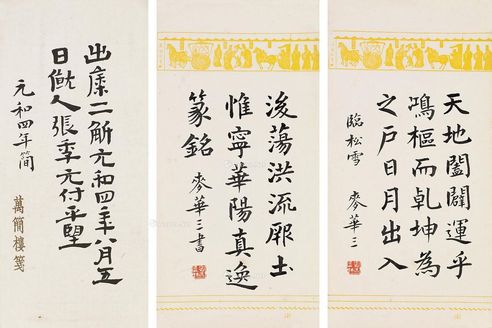 天地闔闢運乎
鴻樞而乾坤為
之戶日月出入
臨松雪 麥華三
後蕩洪流厥土
惟寧華陽真逸
篆銘 麥華三書
出糜二斛元和四年八月五
日僦人張季元付平望
元和四年簡
萬簡樓箋